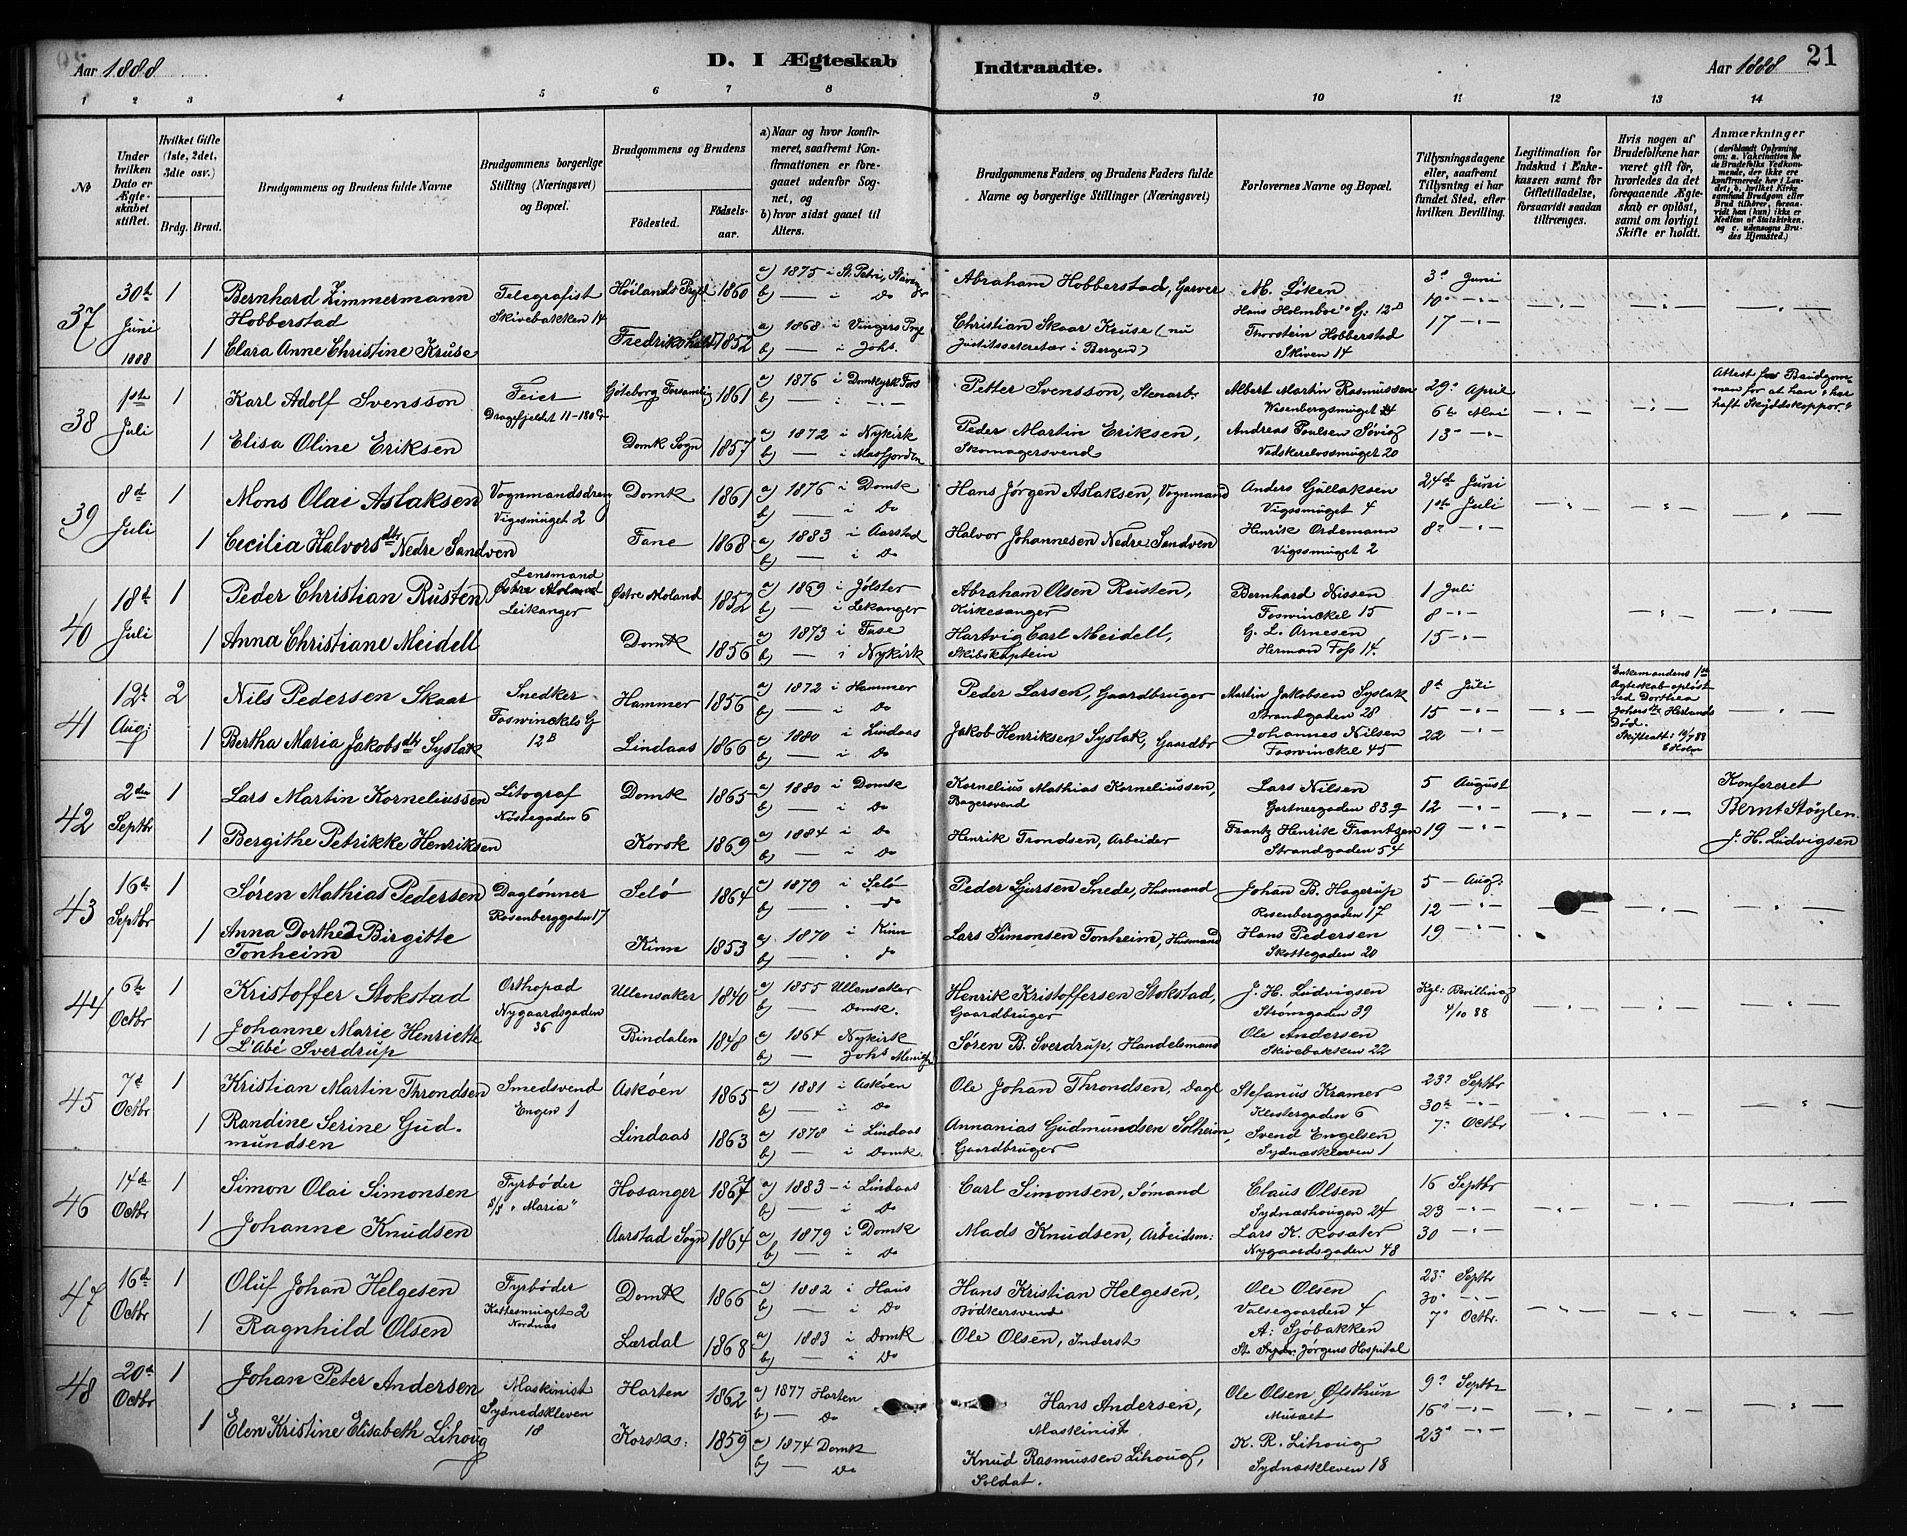 Aar 1888
D. I Ægteskab
Indtraadte.
Aar 1888
21
1 2 3 4 5 6 7 8 9 10 11 12 13 14
No
Under hvilken Dato er Ægteskabet stiftet.
Hvilket Gifte (1ste, 2det, 3die osv.)
Brdg. Brud.
Brudgommens og Brudens fulde Navne
Brudgommens borgerlige Stilling (Næringsvei) og Bopæl.
Brudgommens og Brudens
Fødested.
Fødselsaar.
a) Naar og hvor konfirmeret, saafremt Konfirmationen er foregaaet udenfor Sognet, og
b) hvor sidst gaaet til Alters.
Brudgommens Faders, og Brudens Faders fulde Navne og borgerlige Stillinger (Næringsvei)
Forlovernes Navne og Bopæl.
Tillysningsdagene eller, saafremt Tillysning ei har fundet Sted, efter hvilken Bevilling.
Legitimation for Indskud i Enkekassen samt for Giftetilladelse, forsaavidt saadan tiltrænges.
Hvis nogen af Brudefolkene har været gift, hvorledes da det foregaaende Ægteskab er opløst, samt om lovligt Skifte er holdt.
Anmærkninger (deriblandt Oplysning om: a. Vakcination for de Brudefolks Vedkommende, der ikke ere konfirmerede her i Landet; b. hvilket Kirkesamfund Brudgom eller Brud tilhører, forsaavidt han (hun) ikke er Medlem af Statskirken, og c. udensogns Brudes Hjemsted.)
37 30te Juni 1888
1 Bernhard Zimmermann Hobberstad
Telegrafist Skivebakken 14
Høilands Prgld 1860
a) 1875 i St. Petri, Stavanger
b) — i Do
Abraham Hobberstad, Garver
M. Løken Hans Holmboes G: 12B
3die Juni
10de -"-
17 -"-
1 Clara Anne Christine Kruse
Fredrikshald 1852
a) 1868 i Vingers Prg
b) — i Johs.
Christian Skaar Kruse (nu Justitssekretær i Bergen)
Thorstein Hobberstad Skiven 14
38 1ste Juli
1 Karl Adolf Svensson
Feier Dragefjeldet 11-180
Göteborg Forsamling 1861
a) 1876 i Domkyrk Fors
b) — -"-
Petter Svensson, Stenarbr
Albert Martin Rasmussen Wesenbergsmuget 4
29de April
6te Mai
13de -"-
Attest for Brudgommen for at han "har haft Skyddskoppor."
1 Elisa Oline Eriksen
Domk Sogn 1857
a) 1872 i Nykirk
b) — i Masfjorden
Peder Martin Eriksen, Skomagersvend
Andreas Poulsen Søvig Vadskerelvsmuget 20
39 8de Juli
1 Mons Olai Aslaksen
Vognmandsdreng Vigesmuget 2
Domk 1861
a) 1876 i Domk
b) — i Do
Hans Jørgen Aslaksen, Vognmand
Anders Gullaksen Vigssmuget 4
24de Juni
1ste Juli
8de -"-
1 Cecilia Halvorsdtr Nedre Sandven
Fane 1868
a) 1883 i Aarstad
b) i Do
Halvor Johannesen Nedre Sandven
Henrik Ordemann Vigssmuget 2
40 18de Juli
1 Peder Christian Rusten
Lensmand Østre Moland Leikanger
Østre Moland 1852
a) 1869 i Jølster
b) — i Lekanger
Abraham Olsen Rusten, Kirkesanger
Bernhard Nissen Fosvinckel 15
1 Juli
8 -"-
15 -"-
1 Anna Christiane Meidell
Domk 1856
a) 1873 i Fuse
b) — i Nykirk
Hartvig Carl Meidell, Skibskaptein
G. L. Arnesen Herman Foss 14.
41 12te Aug:
2 Nils Pedersen Skaar
Snedker Fosvinckels G 12B
Hammer 1856
a) 1872 i Hammer
b) — i Do
Peder Larsen, Gaardbruger
Martin Jakobsen Syslak Strandgaden 28
8de Juli
15 -"-
22 -"-
Enkemandens 1ste Ægteskab opløst ved Dorthea Johsdtr Herlands Død. Skifteatt: 14/7 88 E Holm
1 Bertha Maria Jakobsdtr Syslak
Lindaas 1866
a) 1880 i Lindaas
b) — i Do
Jakob Henriksen Syslak, Gaardbr
Johannes Nilsen Fosvinckel 45
42 2den Septbr
1 Lars Martin Korneliussen
Litograf Nøstegaden 6
Domk 1865
a) 1880 i Domk
b) — i Do
Kornelius Mathias Korneliussen, Bagersvend
Lars Nilsen Gartnergaden 83-9
5 August
12 -"-
19 -"-
Konfereret Bernt Støylen. J. H. Ludvigsen
1 Bergithe Petrikke Henriksen
Korsk 1869
a) 1884 i Do
b) — i Do
Henrik Trondsen, Arbeider
Frantz Henrik Frantzen Strandgaden 54
43 16de Septbr
1 Søren Mathias Pedersen
Daglønner Rosenberggaden 17
Selø 1864
a) 1879 i Selø
b) — " do
Peder Sjursen Snede, Husmand
Johan B. Hagerup Rosenberggaden 17
5 — Aug:
12 -"-
19 -"-
1 Anna Dorthea Birgitte Tonheim
Kinn 1853
a) 1870 i Kinn
b) — " do
Lars Simonsen Tonheim, Husmand
Hans Pedersen Skottegaden 20
44 6te Octbr
1 Kristoffer Stokstad
Orthopæd Nygaardsgaden 36
Ullensaker 1840
a) 1855 Ullensaker
b) — Domk.
Henrik Kristoffersen Stokstad, Gaardbruger
J. H. Ludvigsen Strømgaden 39
Kgl: Bevilling 4/10 88
1 Johanne Marie Henriette L'Abé Sverdrup
Bindalen 1848
a) 1864 Nykirk
b) — Johs Menigh
Søren B. Sverdrup, Handelsmand
Ole Andersen Skivebakken 22
45 7de Octbr
1 Kristian Martin Throndsen
Smedsvend Engen 1
Askøen 1865
a) 1881 i Askøen
b) — i Do
Ole Johan Throndsen, Dagl
Stefanus Kramer Klostergaden 6
23de Septbr
30te -"-
7de Octbr
1 Randine Serine Gudmundsen
Lindaas 1863
a) 1878 i Lindaas
b) — i Domk.
Annanias Gudmundsen Solheim, Gaardbruger
Svend Engelsen Sydnæskleven 1
46 14de Octbr
1 Simon Olai Simonsen
Fyrbøder S/S "Maria"
Hosanger 1867
a) 1883 — i Lindaas
b) — i Do
Carl Simonsen, Sømand
Claus Olsen Sydnæshougen 24
16 Septbr
23 -"-
30 -"-
1 Johanne Knudsen
Aarstad Sogn 1864
a) 1879 i Domk
b) — i Do
Mads Knudsen, Arbeidsm:
Lars K. Rosæter Nygaardsgaden 48
47 16de Octbr
1 Oluf Johan Helgesen
Fyrbøder Kattesmuget 2 Nordnæs
Domk 1866
a) 1882 i Haus
b) — i Do
Hans Kristian Helgesen, Bødkersvend
Ole Olsen Valsegaarden 4
23de Septbr
30te -"-
7de Octbr.
1 Ragnhild Olsen
Lærdal 1868
a) 1883 i Domk
b) — i Do
Ole Olsen, Inderst
A: Sjöbakken St. Jørgens Hospital
48 20de Octbr
1 Johan Peter Andersen
Maskinist Sydnedskleven 18
Horten 1862
a) 1877 Horten
b) — Do
Hans Andersen, Maskinist
Ole Olsen Øfsthun Musæet
9de Septbr
16de -"-
23de -"-
1 Elen Kristine Elisabeth Lihoug
Korsk: 1859
a) 1874 Domk
b) — Do
Knud Rasmussen Lihoug, Soldat.
K. R. Lihoug Sydnæskleven 18